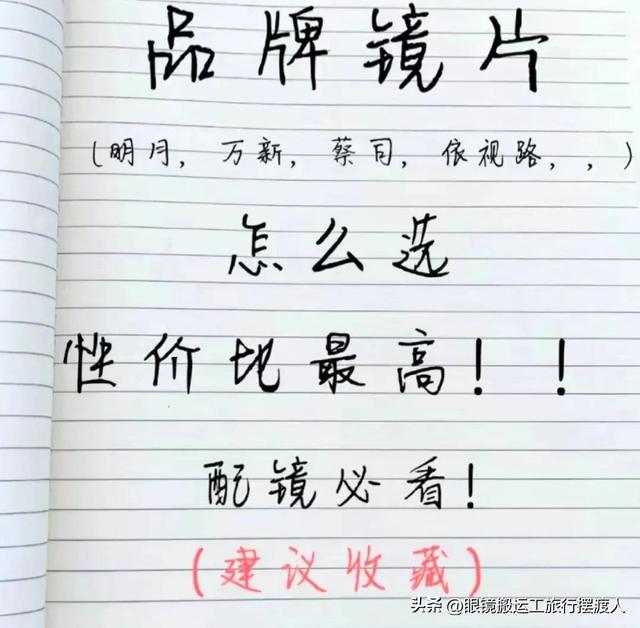 品牌镜片
(明月，万新，蔡司，依视路，，)
怎么选
性价比最高！！
配镜必看！
(建议收藏)
头条 @眼镜搬运工旅行摆渡人